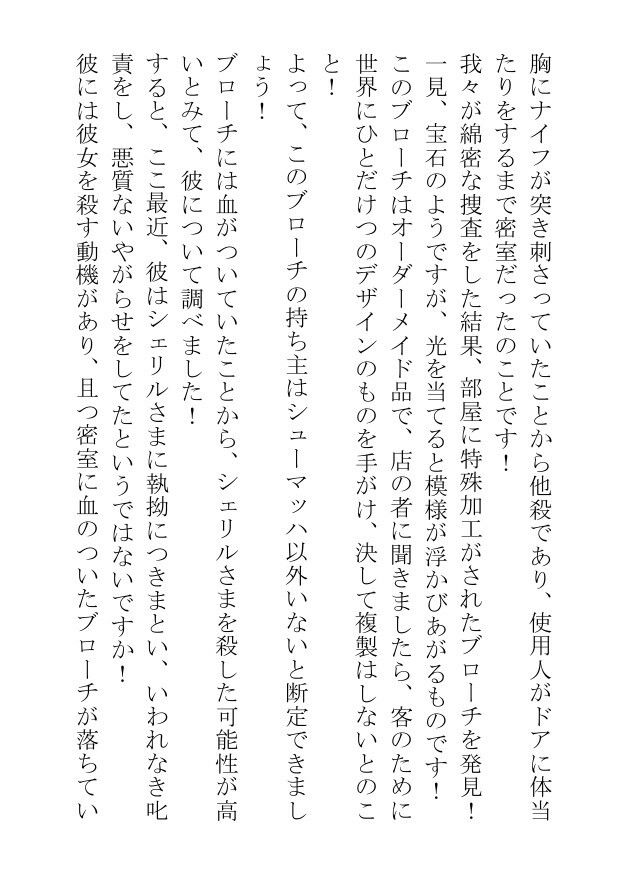 胸にナイフが突き刺さっていたことから他殺であり、使用人がドアに体当
たりをするまで密室だったのことです！
我々が綿密な捜査をした結果、部屋に特殊加工がされたブローチを発見！
一見、宝石のようですが、光を当てると模様が浮かびあがるものです！
このブローチはオーダーメイド品で、店の者に聞きましたら、客のために
世界にひとだけつのデザインのものを手がけ、決して複製はしないとのこ
と！
よって、このブローチの持ち主はシューマッハ以外いないと断定できまし
ょう！
ブローチには血がついていたことから、シェリルさまを殺した可能性が高
いとみて、彼について調べました！
すると、ここ最近、彼はシェリルさまに執拗につきまとい、いわれなき叱
責をし、悪質ないやがらせをしてたというではないですか！
彼には彼女を殺す動機があり、且つ密室に血のついたブローチが落ちてい